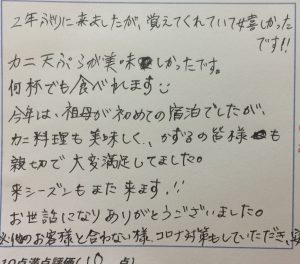 2年ぶりに来ましたが、覚えてくれていて嬉しかった
です!!
カニ天ぷらが美味しかったです。
何杯でも食べれます
今年は、祖母が初めての宿泊でしたが、
カニ料理も美味しく、かずるの皆様も
親切で大変満足してました。
来シーズンもまた来ます!!
お世話になりありがとうございました。
※他のお客様と合わない様、コロナ対策もしていただき、
10点満点評価( 10 点)